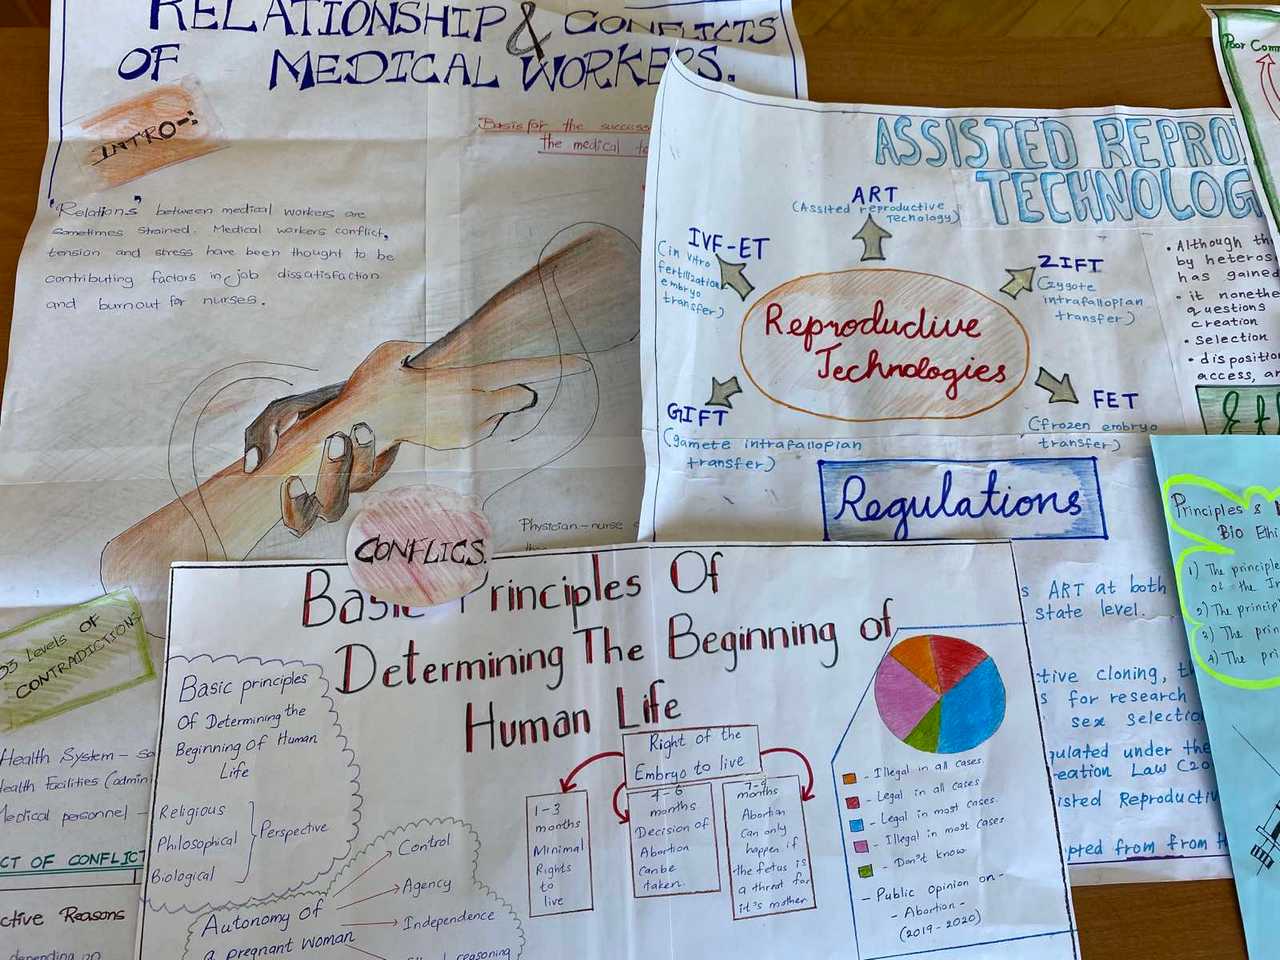 RELATIONSHIP & CONFLICTS
OF MEDICAL WORKERS.
INTRO-:
Basis for the success
the medical
"Relations" between medical workers are
sometimes strained. Medical workers conflict,
tension and stress have been thought to be
contributing factors in job dissatisfaction
and burnout for nurses.
Physician-nurse
CONFLICS.
03 Levels OF
CONTRADICTIONS
Health System -
Health Facilities (admin
Medical personnel -
CT OF CONFLICT
ctive Reasons
depending on
ASSISTED REPRO
TECHNOLOG
ART
(Assited reproductive
Technology)
IVF-ET
(in vitro
fertilization
embryo
transfer)
ZIFT
(zygote
intrafallopian
transfer)
Reproductive
Technologies
GIFT
(gamete intrafallopian
transfer)
FET
(frozen embryo
transfer)
Regulations
• Although th
by heteros
has gained
• it nonethe
questions
creation
• selection
• dispositio
access, an
s ART at both
state level.
ctive cloning, th
s for research
sex selectio
gulated under the
eation Law (20
isted Reproductiv
opted from from
Poor Com
Principles &
Bio Ethi
1) The principle
of the I
2) The princip
3) The prin
4) The pri
Basic Principles Of
Determining The Beginning of
Human Life
Basic principles
Of Determining the
Beginning of Human
Life
Religious
Philosophical
Biological
Perspective
Autonomy of
a pregnant woman
Control
Agency
Independence
reasoning
Right of the
Embryo to live
1-3
months
Minimal
Rights
to
live
4-6
months
Decision of
Abortion
canbe
taken.
7-9
months
Abortion
can only
happen if
the fetus is
a threat for
it's mother
- Illegal in all cases.
- Legal in all cases
- Legal in most cases.
- Illegal in most cases
- Don't know
- Public opinion on -
- Abortion -
(2019-2020)